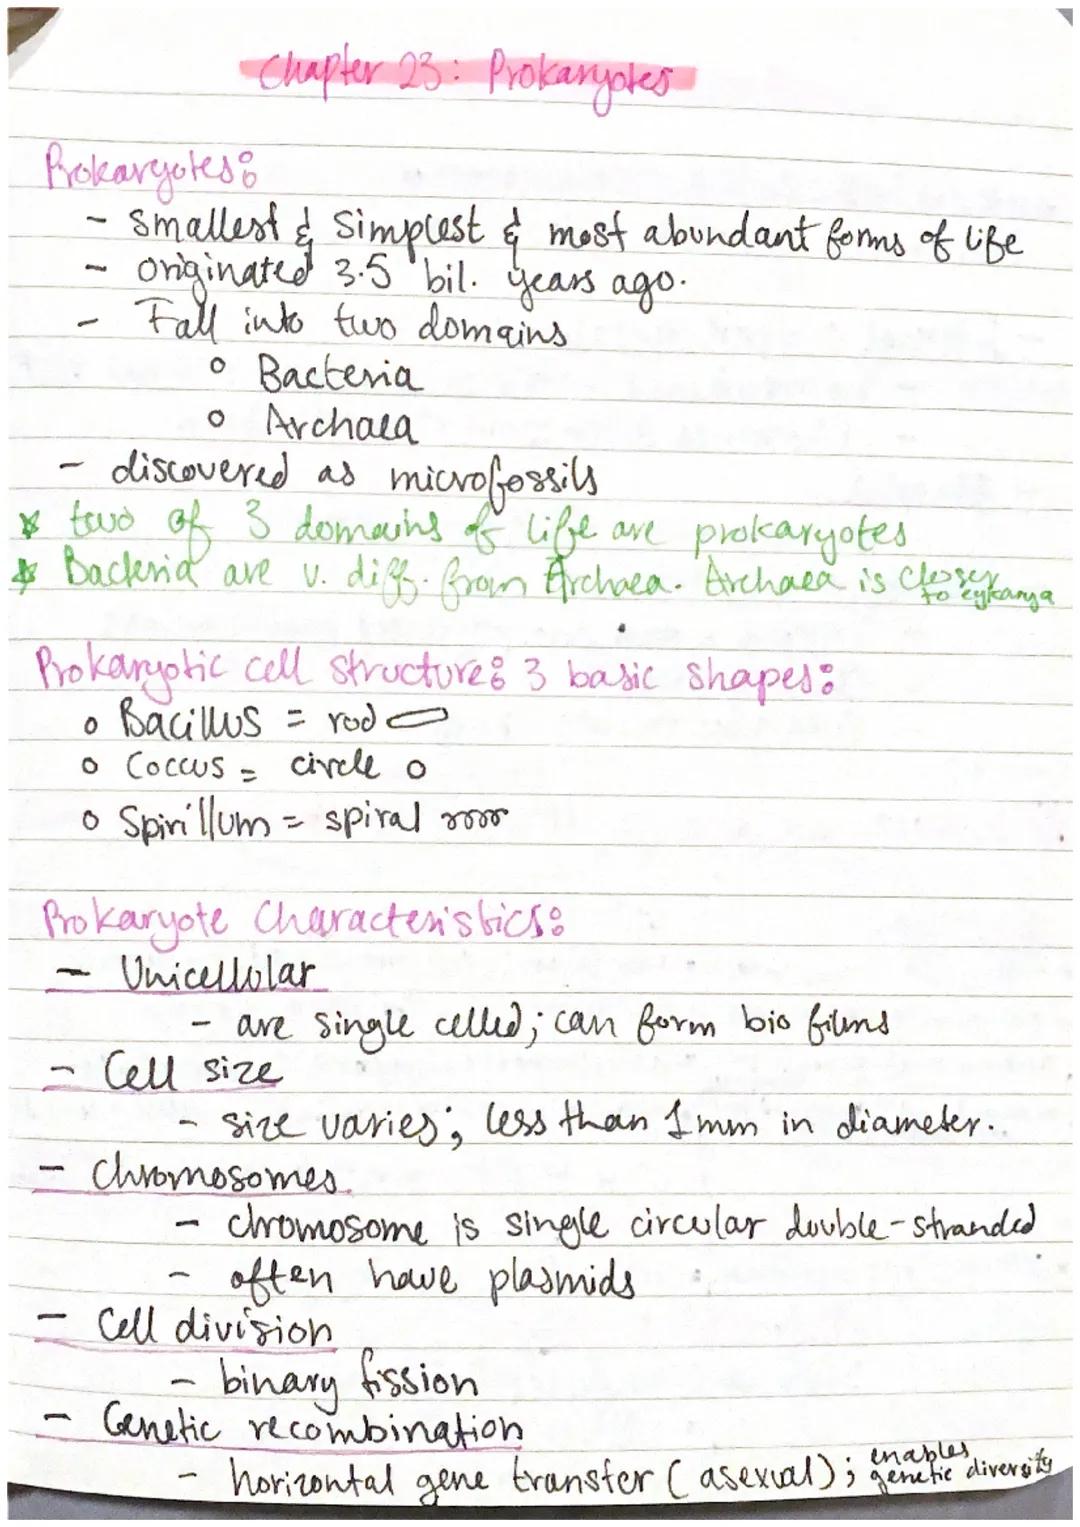 Chapter 23: Prokaryotes
Prokaryotes:
- smallest & simplest & most abundant forms of life
- originated 3.5 bil. years ago.
- Fall into two domains
○ Bacteria
○ Archaea
- discovered as microfossils
☆ two of 3 domains of life are prokaryotes
☆ Bacteria are v. diff. from Archaea. Archaea is closer to eykarya
Prokaryotic cell structure: 3 basic shapes:
○ Bacillus = rod
○ Coccus = circle
○ Spirillum = spiral
Prokaryote Characteristics:
- Unicellular
- are single celled; can form bio films
- Cell size
- size varies; less than 1mm in diameter.
- Chromosomes
- chromosome is single circular double-stranded
- often have plasmids
- Cell division
- binary fission
- Genetic recombination
- horizontal gene transfer (asexual); enables genetic diversity